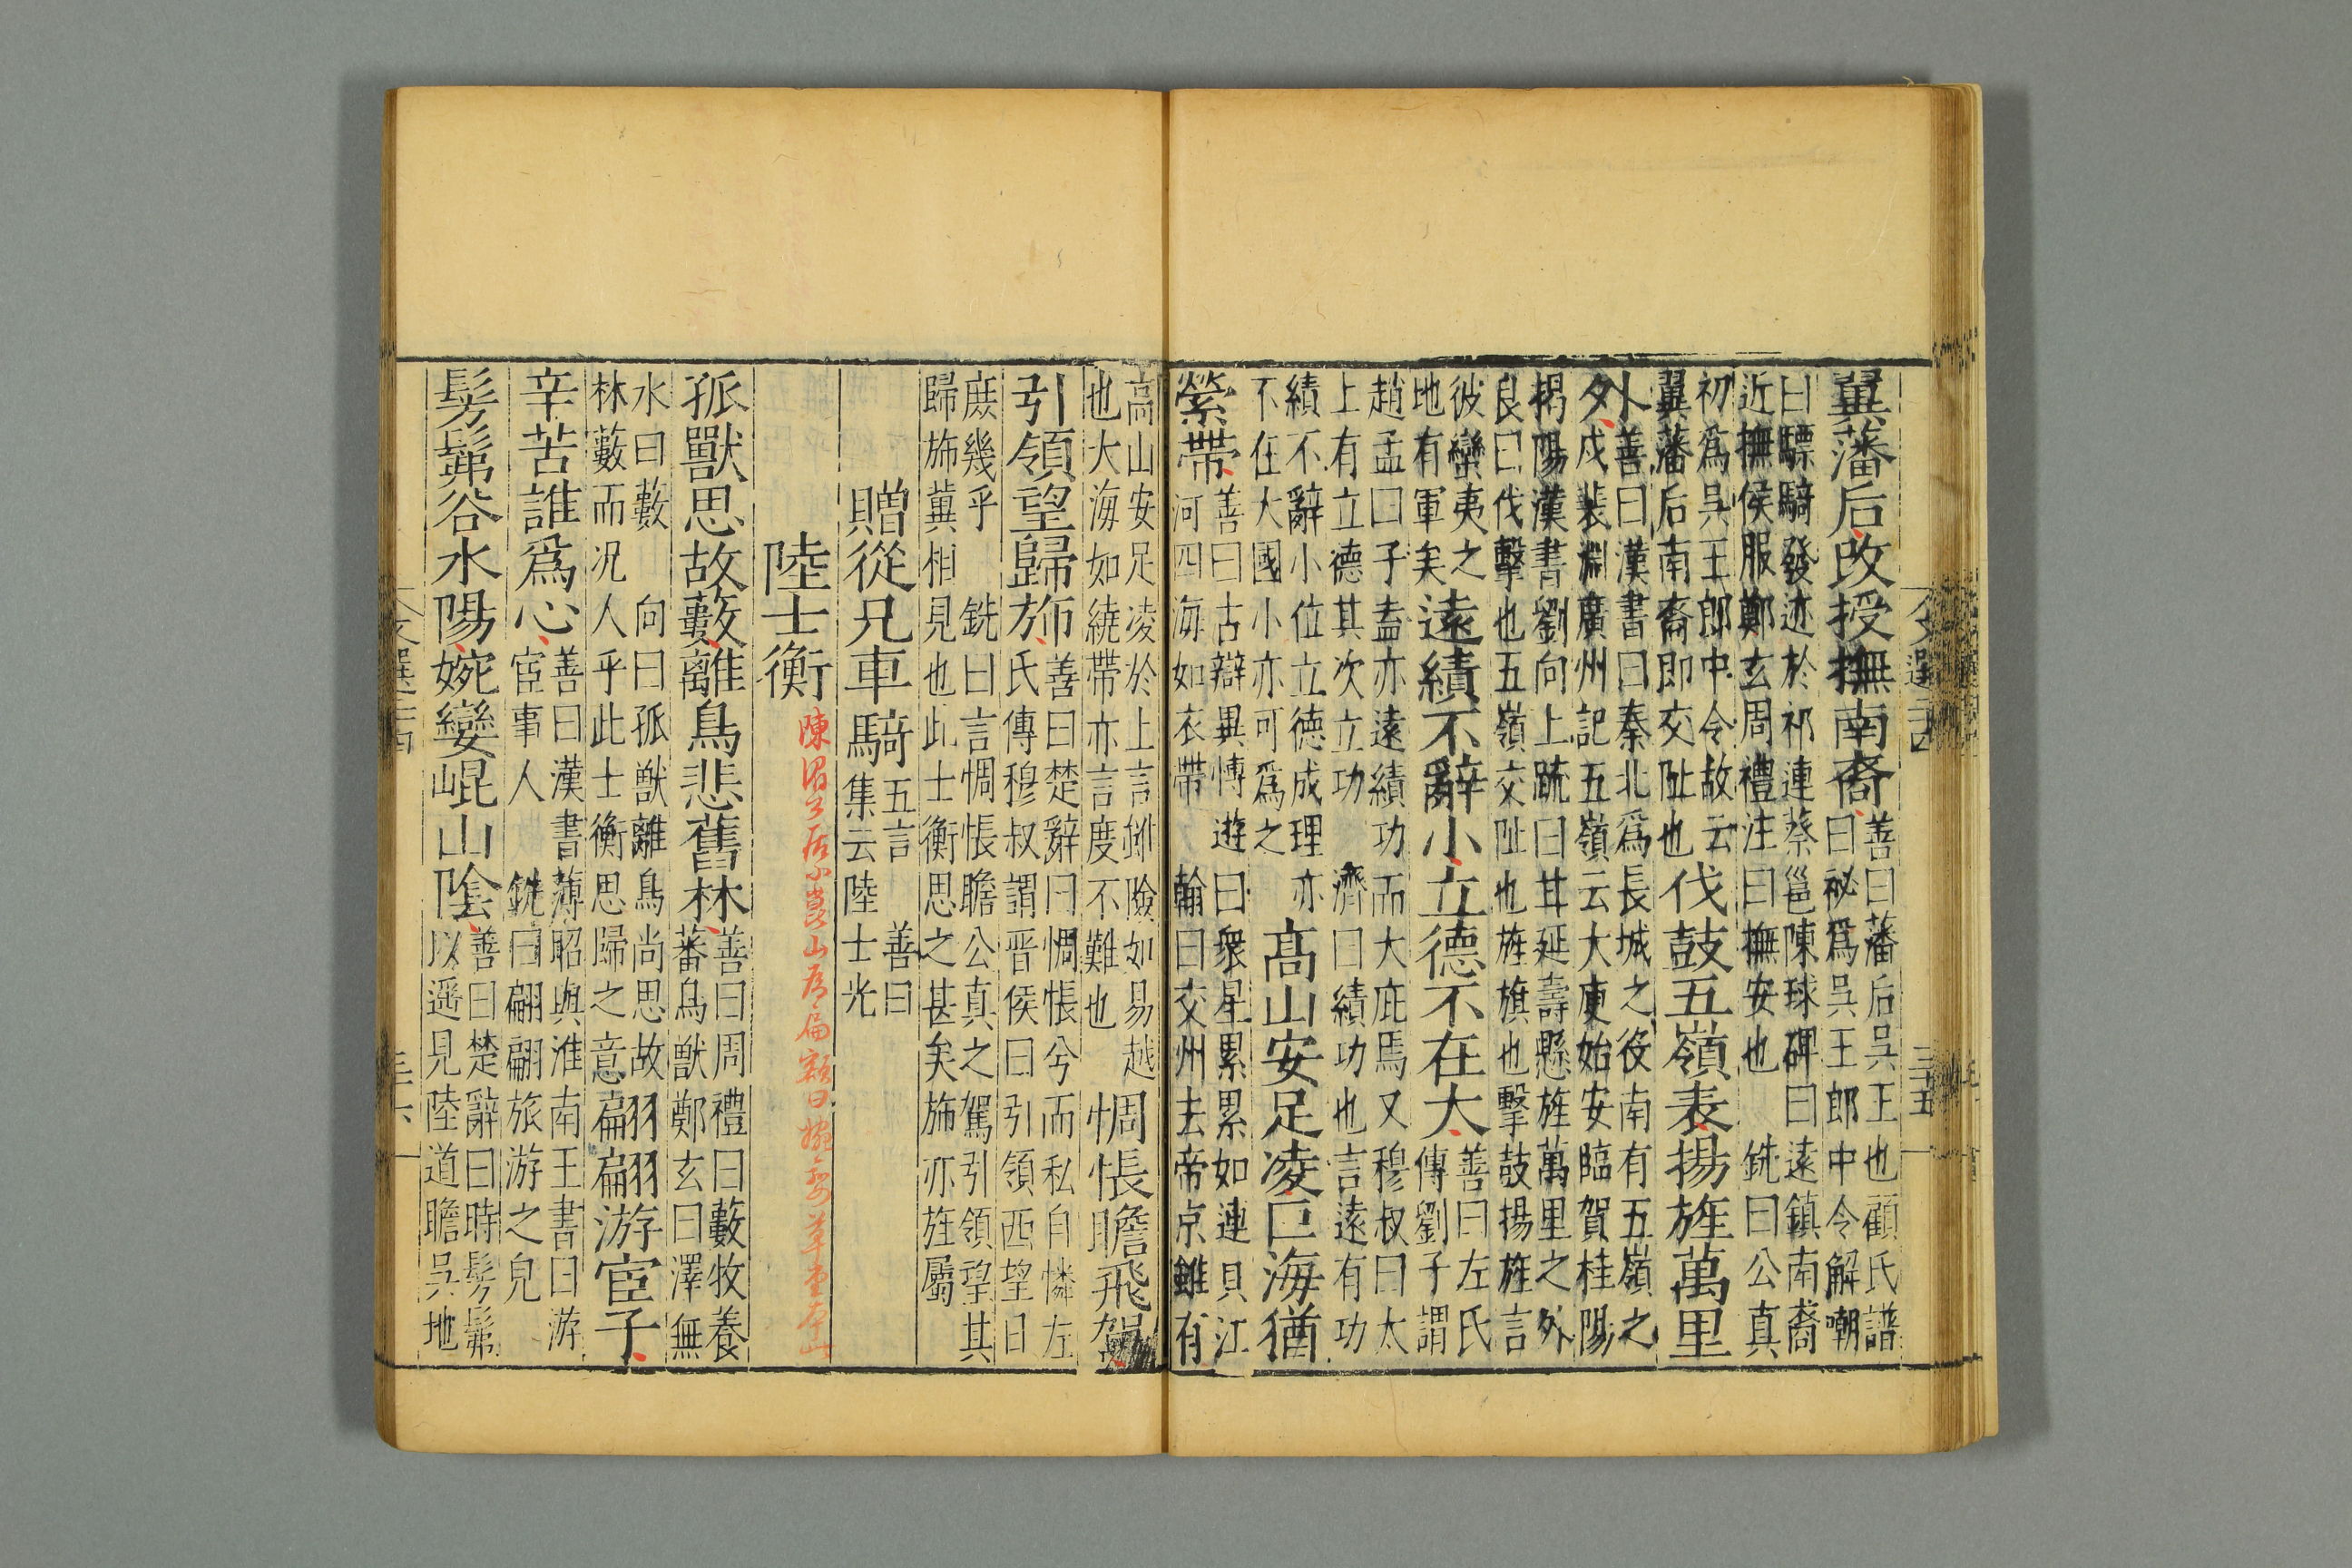 翼藩后改授撫南裔善曰藩后吳王也顧氏譜
曰祕爲吳王郎中令解嘲
曰驃騎發迹於祁連蔡邕陳球碑曰遠鎮南裔
近撫侯服鄭玄周禮注曰撫安也 銑曰公真
初爲吳王郎中令故云
翼藩后南裔即交阯也
伐鼓五嶺表揚旌萬里
外善曰漢書曰秦北爲長城之役南有五嶺之
戍裴淵廣州記五嶺云大庾始安臨賀桂陽
揭陽漢書劉向上疏曰甘延壽懸旌萬里之外
良曰伐擊也五嶺交阯也旌旗也擊鼓揚旌言
彼蠻夷之
地有軍矣
遠績不辭小立德不在大善曰左氏
傳劉子謂
趙孟曰子盍亦遠績功而大庇焉又穆叔曰太
上有立德其次立功 濟曰績功也言遠有功
績不辭小位立德成理亦
不在大國小亦可爲之
高山安足凌巨海猶
縈帶善曰古辯異博遊曰衆星累累如連貝江
河四海如衣帶 翰曰交州去帝京雖有
高山安足凌於上言艱險如易越
也大海如繞帶亦言度不難也
惆悵瞻飛駕
引領望歸斾善曰楚辭曰惆悵兮而私自憐左
氏傳穆叔謂晋侯曰引領西望曰
庶幾乎 銑曰言惆悵瞻公真之駕引領望其
歸斾冀相見也此士衡思之甚矣斾亦旌屬
贈從兄車騎五言 善曰
集云陸士光
陸士衡
孤獸思故藪離鳥悲舊林善曰周禮曰藪牧養
蕃鳥獸鄭玄曰澤無
水曰藪 向曰孤獸離鳥尚思故
林藪而况人乎此士衡思歸之意
翩翩游宦子
辛苦誰爲心善曰漢書薄昭與淮南王書曰游
宦事人 銑曰翩翩旅游之皃
髣髴谷水陽婉孌崐山陰善曰楚辭曰時髣髴
以遥見陸道瞻吳地